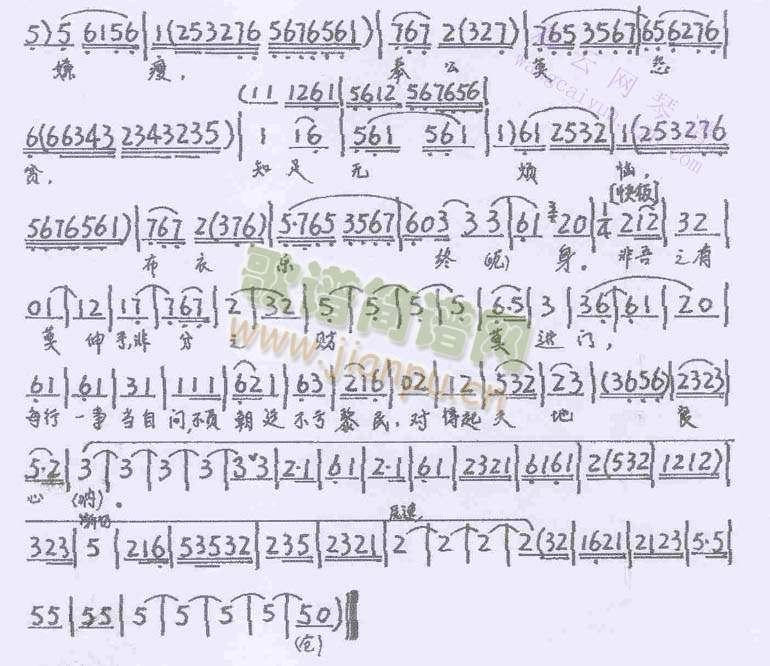 5)5 6156|1(253276 5676561)|767 2(327)|765 3567|656276|
嫌 瘦, 奉 公 莫 怨
(11 1261|5612 567656|
6(66343 2343235)|1 16|561 561|1)61 2532|1(253276
贫, 知 足 无 烦 恼,
[快板]
5676561)|767 2(376)|5·765 3567|603 33|61 20|1/4 212|32|
布 衣 乐 终 (呃) 身。 非吾 之有
01|12|17|767|2|32|5|5|5|5|6·5|3|36|61|20|
莫 伸 手,非 分 之 财 莫 进 门,
61|61|31|111|621|63|216|02|12|532|23|(3656)|2323|
每行 一事 当自 问,不负 朝廷 不亏 黎民, 对 得起 天 地 良
5·2|3|3|3|3|33|2·1|61|2·1|61|2321|6161|2(532|1212)|
心 (呐)。
323|5|216|53532|235|2321|2|2|2|2(32|1621|2123|5·5|
55|55|5|5|5|5|50)‖
(仓)
歌谱简谱网
www.jianpu.cn